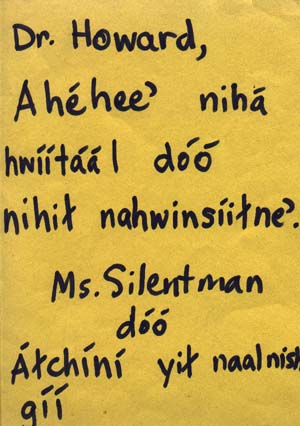 Dr. Howard,
Ahéhee’ nihá
hwiítáál dóó
nihił nahwinsíiłne’.
Ms. Silentman
dóó
Áłchíní yił naalnish
gíí